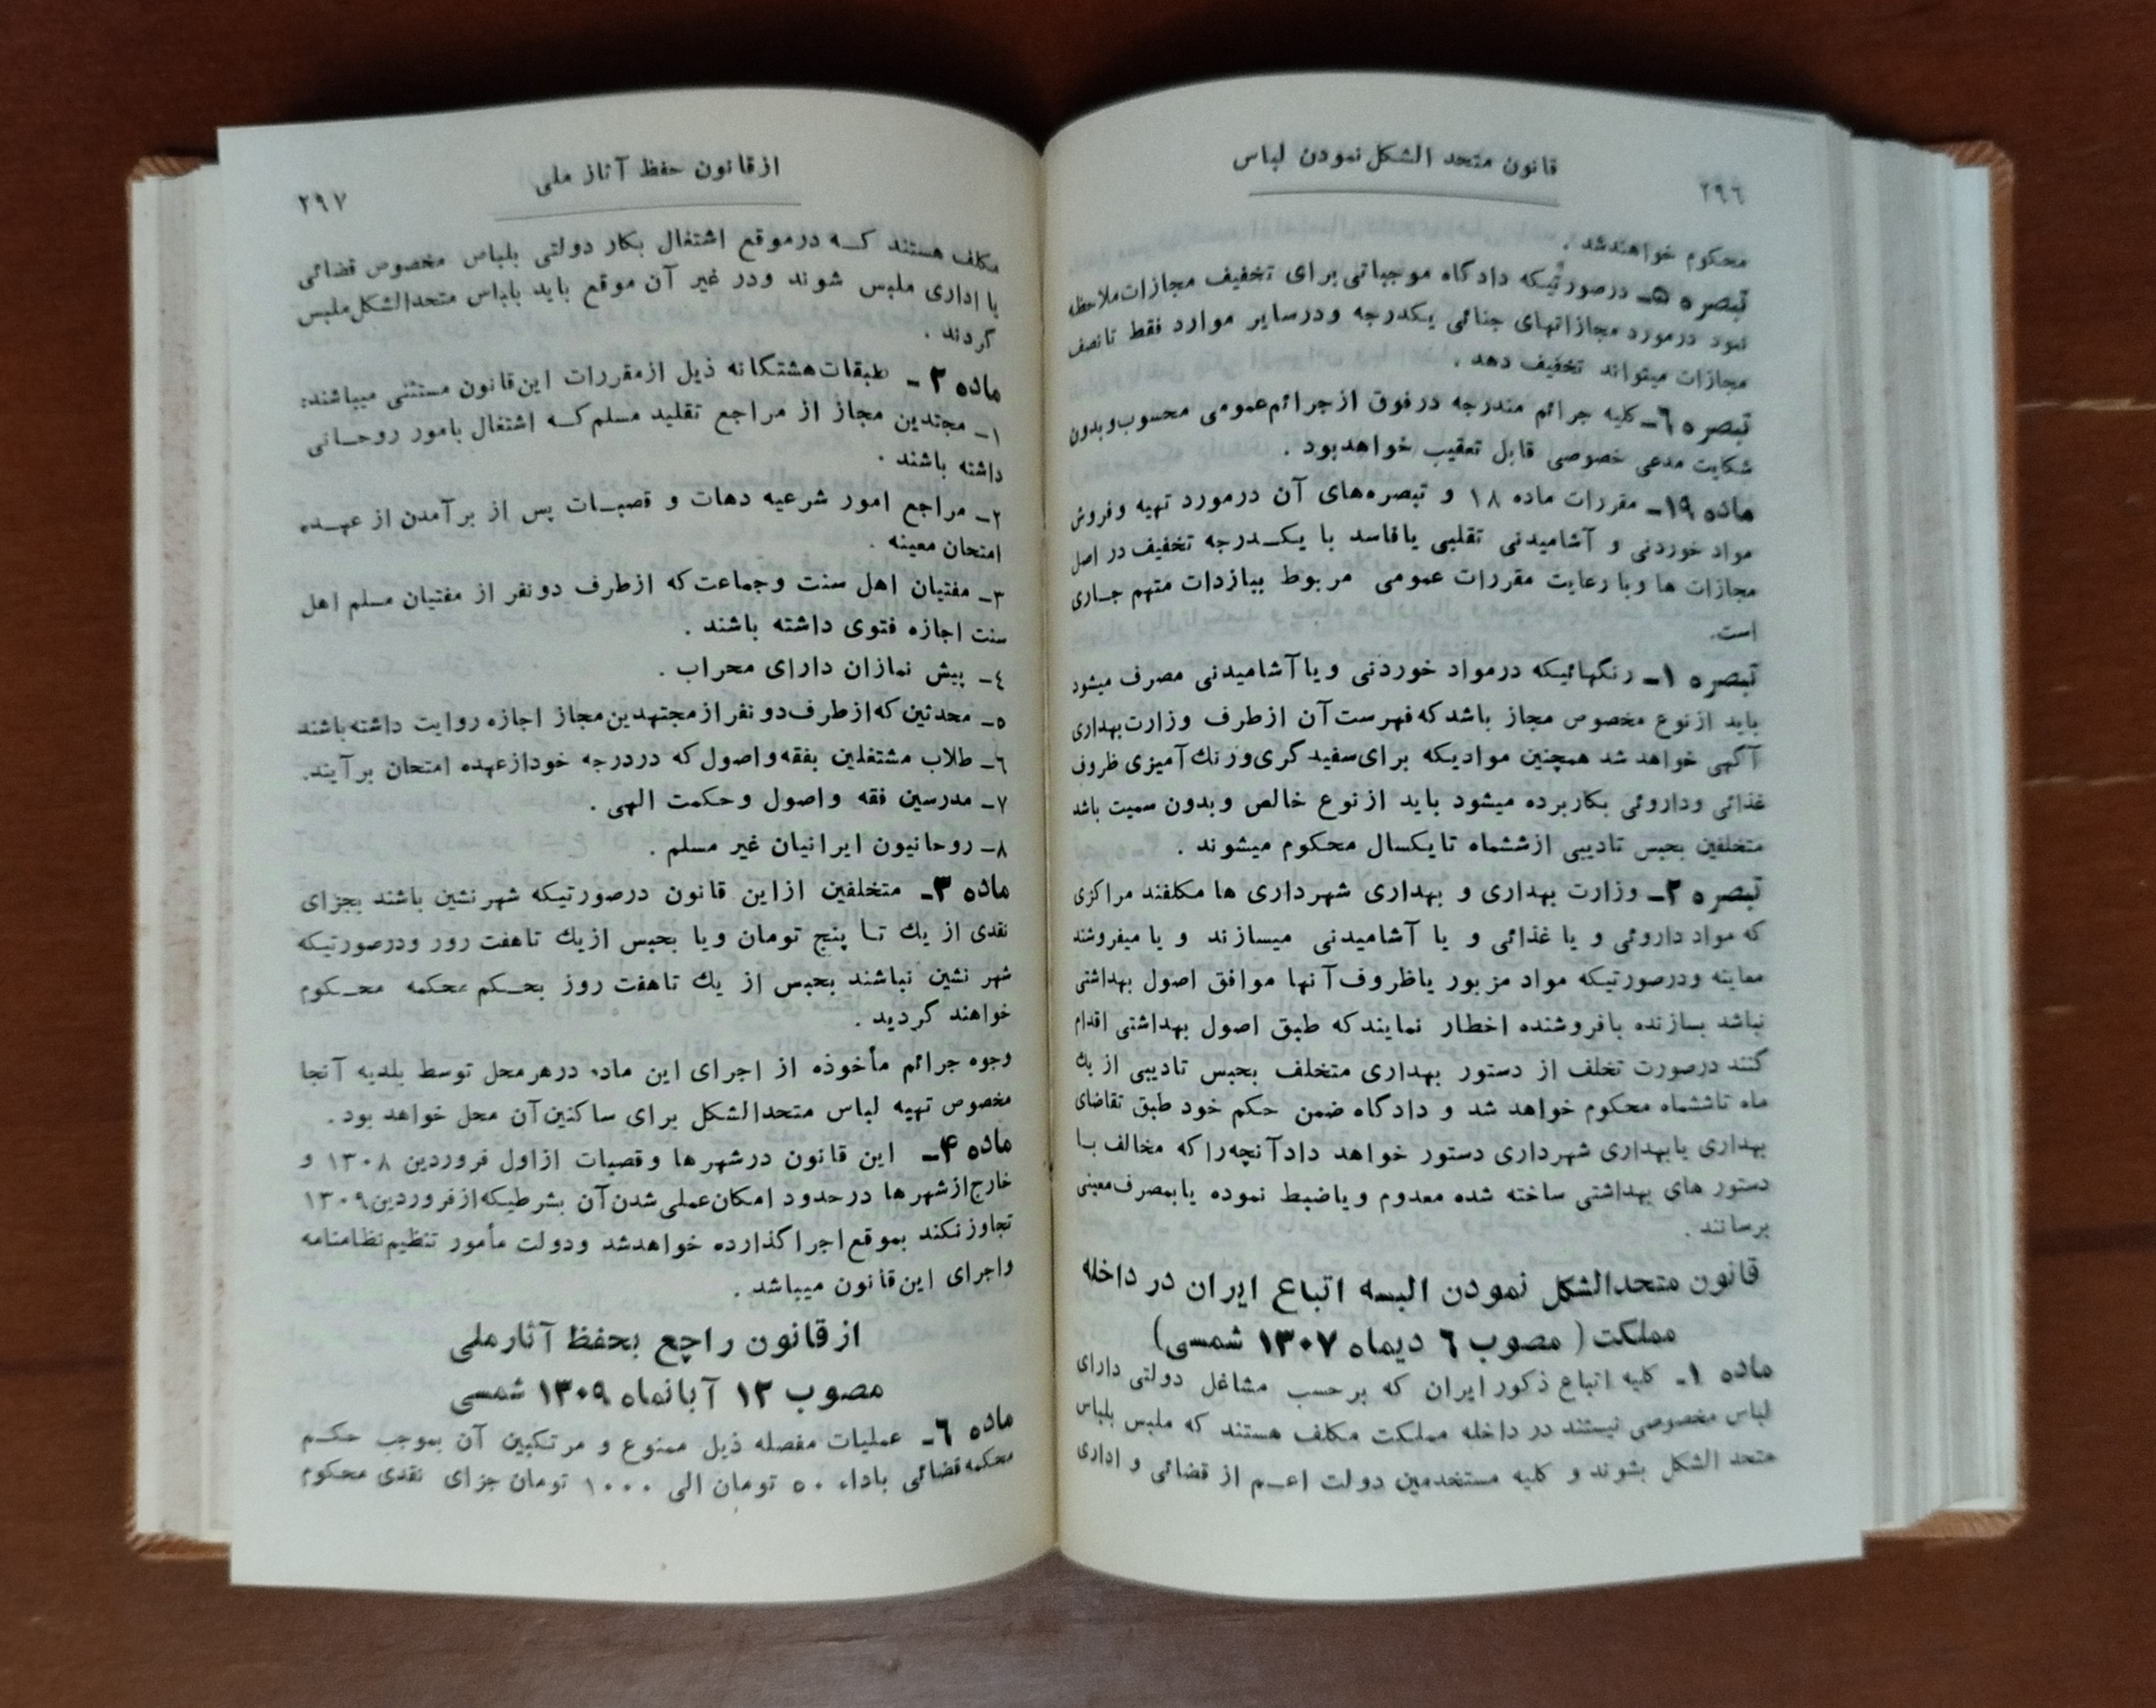 قانون متحد الشکل نمودن لباس
٢٩٦
محکوم خواهندشد .
تبصره ٥ـ درصورتیکه دادگاه موجباتی برای تخفیف مجازات ملاحظه
نمود درمورد مجازاتهای جنائی یکدرجه ودرسایر موارد فقط تانصف
مجازات میتواند تخفیف دهد .
تبصره ٦ـ کلیه جرائم مندرجه درفوق ازجرائم عمومی محسوب وبدون
شکایت مدعی خصوصی قابل تعقیب خواهدبود .
ماده ١٩ـ مقررات ماده ١٨ و تبصره‌های آن درمورد تهیه وفروش
مواد خوردنی و آشامیدنی تقلبی یافاسد با یکـدرجه تخفیف در اصل
مجازات ها وبا رعایت مقررات عمومی مربوط ببازدات متهم جـاری
است.
تبصره ١ـ رنگهائیکه درمواد خوردنی ویاآشامیدنی مصرف میشود
باید ازنوع مخصوص مجاز باشدکه فهرست آن ازطرف وزارت بهداری
آگهی خواهد شد همچنین موادیکه برای سفیدگری ورنك آمیزی ظروف
غذائی وداروئی بکاربرده میشود باید ازنوع خالص وبدون سمیت باشد
متخلفین بحبس تادیبی ازششماه تایکسال محکوم میشوند .
تبصره ٢ـ وزارت بهداری و بهداری شهرداری ها مکلفند مراکزی
که مواد داروئی و یا غذائی و یا آشامیدنی میسازند و یا میفروشند
معاینه ودرصورتیکه مواد مزبور یاظروف آنها موافق اصول بهداشتی
نباشد بسازنده یافروشنده اخطار نمایندکه طبق اصول بهداشتی اقدام
کنند درصورت تخلف از دستور بهداری متخلف بحبس تادیبی از یك
ماه تاششماه محکوم خواهد شد و دادگاه ضمن حکم خود طبق تقاضای
بهداری یابهداری شهرداری دستور خواهد دادآنچه‌را که مخالف بـا
دستور های بهداشتی ساخته شده معدوم ویاضبط نموده یابمصرف معینی
برسانند .
قانون متحدالشکل نمودن البسه اتباع ایران در داخله
مملکت ( مصوب ٦ دیماه ١٣٠٧ شمسی)
ماده ١ـ کلیه اتباع ذکور ایران که برحسب مشاغل دولتی دارای
لباس مخصوصی نیستند در داخله مملکت مکلف هستند که ملبس بلباس
متحد الشکل بشوند و کلیه مستخدمین دولت اعـم از قضائی و اداری
ازقانون حفظ آثار ملی
٢٩٧
مکلف هستند کـه درموقع اشتغال بکار دولتی بلباس مخصوص قضائی
یا اداری ملبس شوند ودر غیر آن موقع باید بلباس متحدالشکل ملبس
گردند .
ماده ٢ ـ طبقات هشتگانه ذیل ازمقررات این قانون مستثنی میباشند:
١ـ مجتدین مجاز از مراجع تقلید مسلم کـه اشتغال بامور روحـانی
داشته باشند .
٢ـ مراجع امور شرعیه دهات و قصبـات پس از برآمدن از عهـده
امتحان معینه .
٣ـ مفتیان اهل سنت وجماعت که ازطرف دونفر از مفتیان مسلم اهل
سنت اجازه فتوی داشته باشند .
٤ـ پیش نمازان دارای محراب .
٥ـ محدثین که ازطرف دونفر ازمجتهدین مجاز اجازه روایت داشته باشند
٦ـ طلاب مشتغلین بفقه واصول که دردرجه خودازعهده امتحان برآیند.
٧ـ مدرسین فقه واصول وحکمت الهی .
٨ـ روحانیون ایرانیان غیر مسلم .
ماده ٣ـ متخلفین ازاین قانون درصورتیکه شهرنشین باشند بجزای
نقدی از یك تـا پنج تومان ویا بحبس ازیك تاهفت روز ودرصورتیکه
شهر نشین نباشند بحبس از یك تاهفت روز بحـکم محکمه محـکوم
خواهند گردید .
وجوه جرائم مأخوذه از اجرای این ماده درهرمحل توسط بلدیه آنجا
مخصوص تهیه لباس متحدالشکل برای ساکنین آن محل خواهد بود .
ماده ۴ـ این قانون درشهرها وقصبات ازاول فروردین ١٣٠٨ و
خارج ازشهرها درحدود امکان عملی شدن آن بشرطیکه ازفروردین ١٣٠٩
تجاوزنکند بموقع اجراگذارده خواهدشد ودولت مأمور تنظیم نظامنامه
واجرای این قانون میباشد .
ازقانون راجع بحفظ آثارملی
مصوب ١٢ آبانماه ١٣٠٩ شمسی
ماده ٦ـ عملیات مفصله ذیل ممنوع و مرتکبین آن بموجب حکـم
محکمه قضائی باداء ٥٠ تومان الی ١٠٠٠ تومان جزای نقدی محکوم